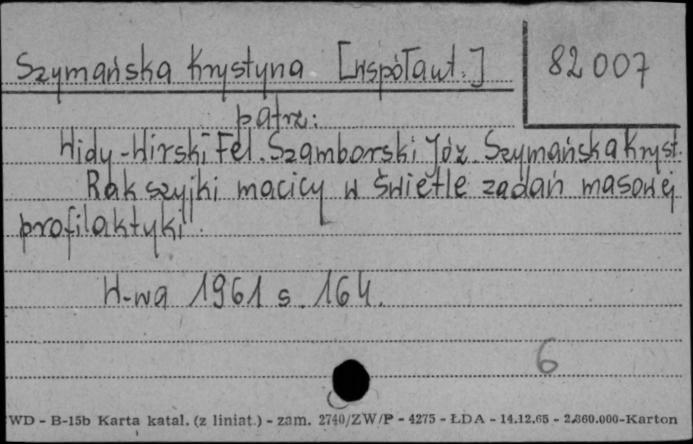 Szymańska Krystyna [współaut.]
82 007
patrz:
Widy-Wirski Fel. Szamborski Józ. Szymańska Kryst.
Rak szyjki macicy w świetle zadań masowej
profilaktyki.
W-wa 1961 s. 164.
6
WD - B-15b Karta katal. (z liniat.) - zam. 2740/ZW/P - 4275 - ŁDA - 14.12.65 - 2.860.000-Karton